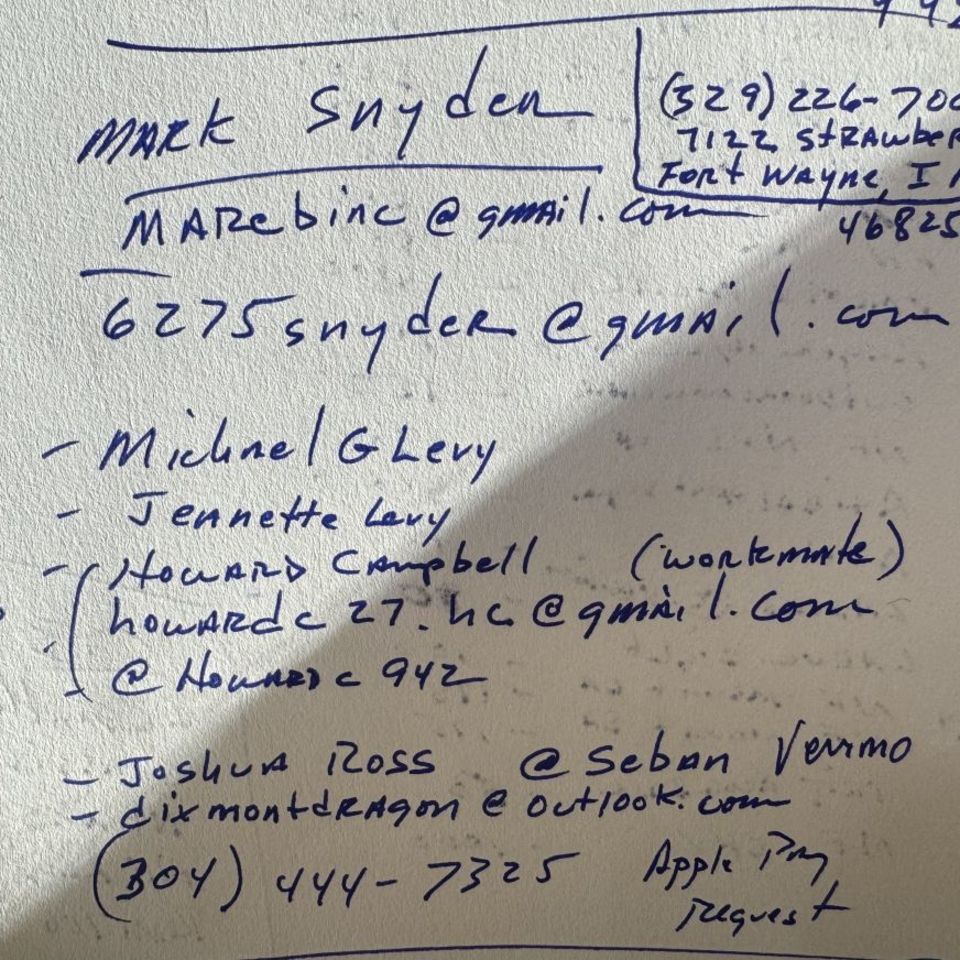 Mark Snyder
(329) 226-70
7122 Strawber
Fort Wayne, I
46825
MARcbinc@gmail.com
6275snyder@gmail.com
- Michael G Levy
- Jennette Levy
- Howard Campbell (workmate)
howardc27.hc@gmail.com
- @Howardc942
- Joshua Ross @Seban Venmo
- dixmontdragon@outlook.com
(304) 444-7325 Apple Pay
request